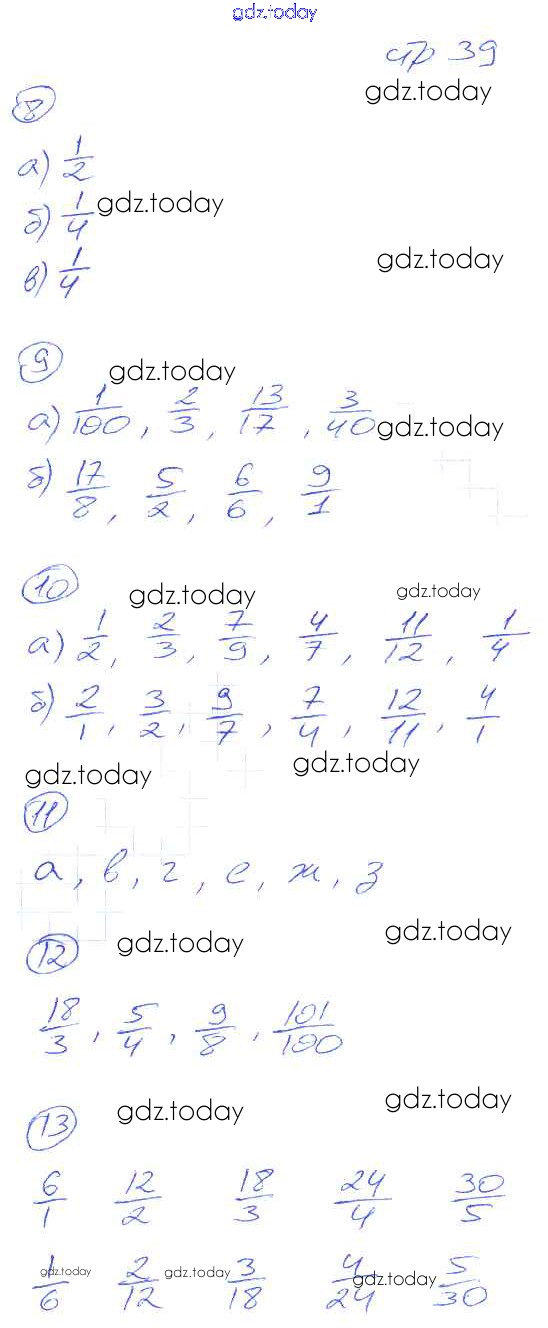 gdz.today
стр 39
gdz.today
8
а) 1/2
gdz.today
б) 1/4
gdz.today
в) 1/4
9
gdz.today
а) 1/100, 2/3, 13/17, 3/40
gdz.today
б) 17/8, 5/2, 6/6, 9/1
10
gdz.today gdz.today
а) 1/2, 2/3, 7/9, 4/7, 11/12, 1/4
б) 2/1, 3/2, 9/7, 7/4, 12/11, 4/1
gdz.today gdz.today
11
а, в, г, е, ж, з
12
gdz.today gdz.today
18/3, 5/4, 9/8, 101/100
13
gdz.today gdz.today
6/1 12/2 18/3 24/4 30/5
1/6 2/12 3/18 4/24 5/30
gdz.today gdz.today gdz.today